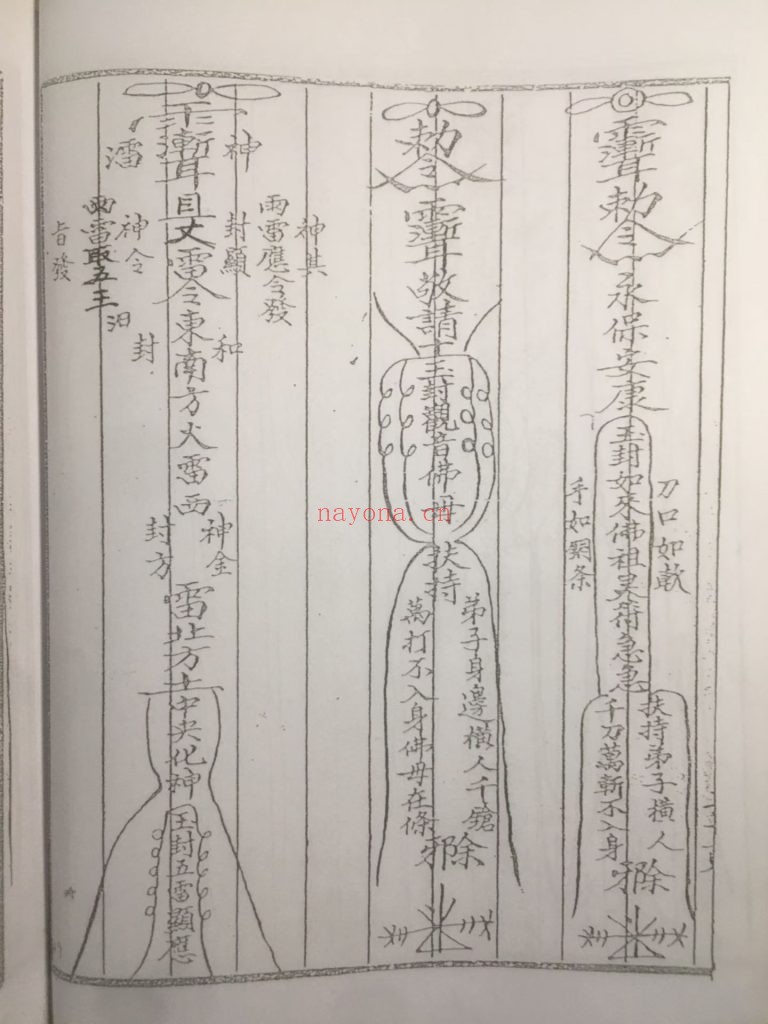 勅令
永保安康
玉封如來佛祖
急急
刀口如
手如
扶持弟子橫人
千刀萬斬不入身
勅令
敬請
玉封觀音佛母
扶持
弟子身邊橫人千鎗
萬打不入身佛母在條
神其
雨雷應令發
神
封顯
和
神金
雷令東南方火雷西
雷北方土中央化神
玉封五雷顯應
神令
封
封方
雨雷取五王
旨發
nayona.cn